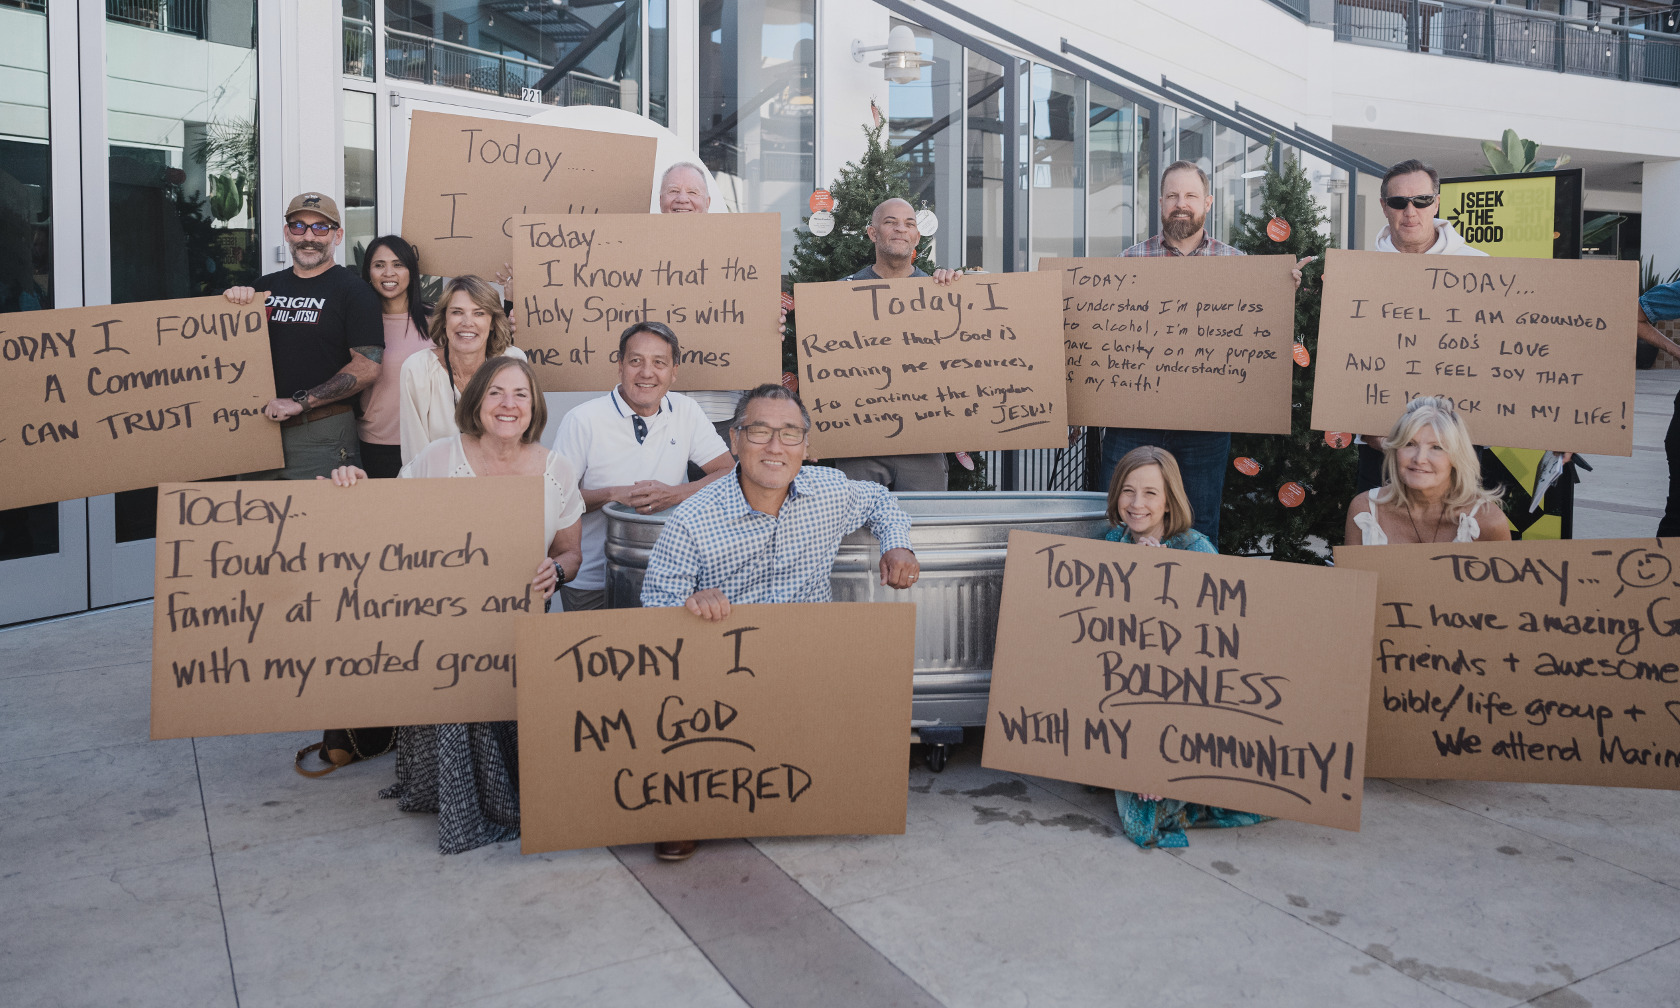 221
Today.....
I
Today...
I Know that the
Holy Spirit is with
me at
SEEK
THE
GOOD
ORIGIN
JIU-JITSU
TODAY I FOUND
A Community
CAN TRUST Again
Today. I
Realize that God is
loaning me resources,
to continue the kingdom
building work of JESUS!
TODAY:
I understand I'm powerless
to alcohol, I'm blessed to
have clarity on my purpose
and a better understanding
of my faith!
TODAY...
I FEEL I AM GROUNDED
IN GOD'S LOVE
AND I FEEL JOY THAT
HE IS BACK IN MY LIFE!
Today...
I found my Church
family at Mariners and
with my rooted group
TODAY I
AM GOD
CENTERED
TODAY I AM
JOINED IN
BOLDNESS
WITH MY COMMUNITY!
TODAY...
I have amazing
friends + awesome
bible/life group +
We attend Marin